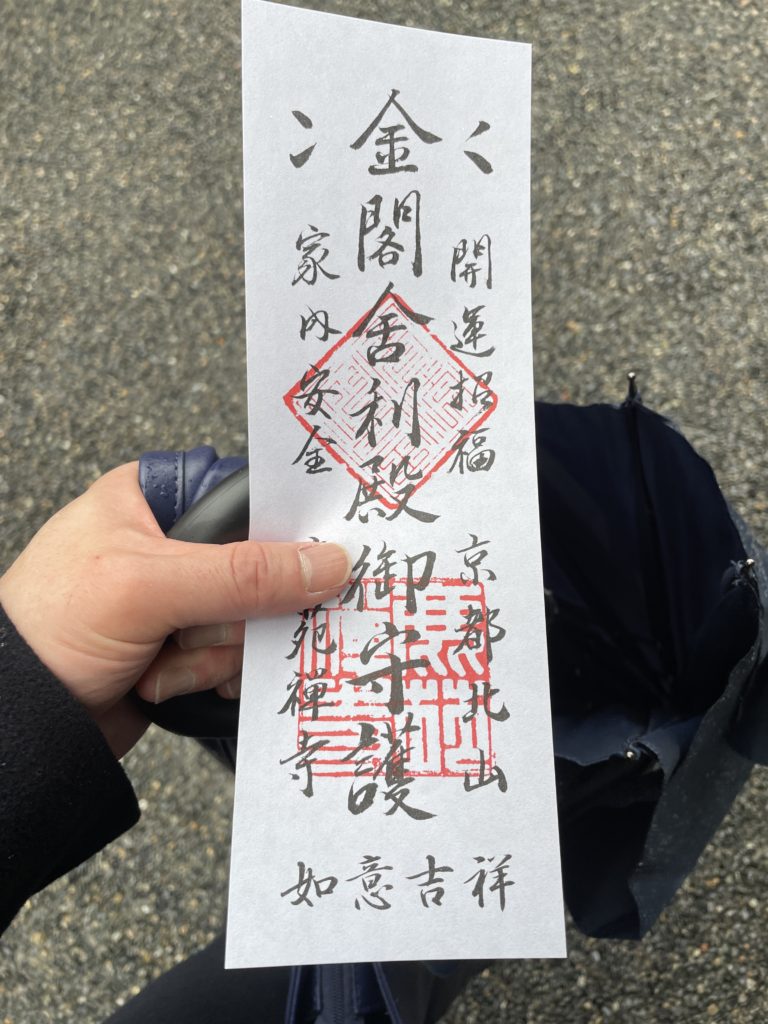 開運招福 京都北山
金閣舎利殿御守護
家内安全 苑禅寺
如意吉祥